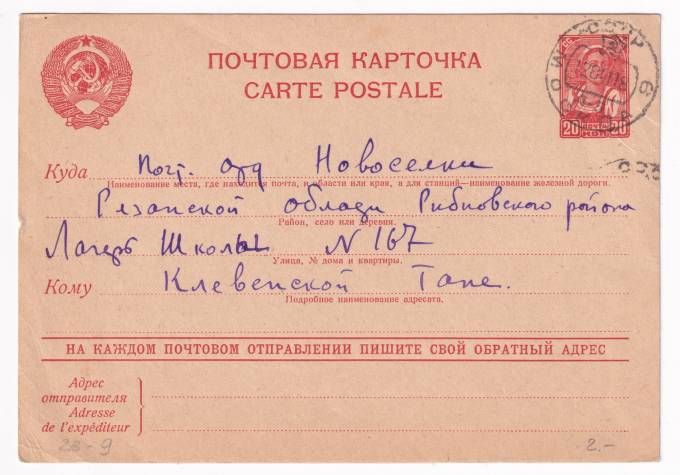 ПОЧТОВАЯ КАРТОЧКА
CARTE POSTALE
20 ПОЧТА 20
КОП.
Куда Почт. отд Новоселки
Наименование места, где находится почта, и области или края, а для станций—наименование железной дороги.
Рязанской области Рибновского района
Район, село или деревня.
Лагерь Школы N 167
Улица, № дома и квартиры.
Кому Клевенской Тане.
Подробное наименование адресата.
НА КАЖДОМ ПОЧТОВОМ ОТПРАВЛЕНИИ ПИШИТЕ СВОЙ ОБРАТНЫЙ АДРЕС
Адрес
отправителя
Adresse
de l'expéditeur
28-9 2.-